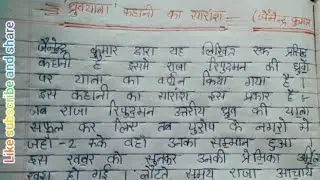 "ध्रुवयात्रा" कहानी का सारांश (जैनेन्द्र कुमार
जैनेन्द्र कुमार द्वारा यह लिखित एक प्रसिद्ध
कहानी है इसमें राजा रिपुदमन की ध्रुवों
पर यात्रा का वर्णन किया गया है।
इस कहानी का सारांश इस प्रकार है-
जब राजा रिपुदमन उत्तरीय ध्रुव की यात्रा
सफल कर लिए तब यूरोप के नगरों में
जहाँ-2 रुके वहाँ उनका सम्मान हुआ
इस खबर को सुनकर उनकी प्रेमिका
खुश हो गई। लौटते समय राजा आचार्य
Like subscribe and share